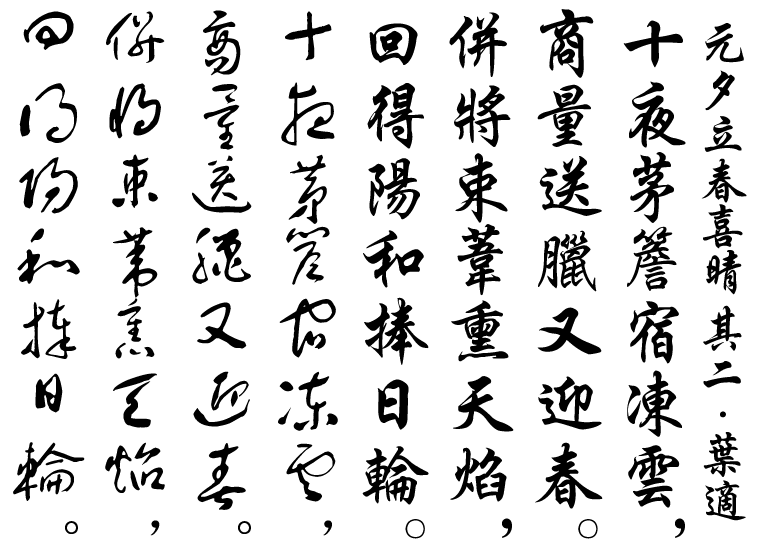 元夕立春喜晴其二·葉適
十夜茅簷宿凍雲，
商量送臘又迎春。
併將束葦熏天焰，
回得陽和捧日輪。
十夜茅簷宿凍雲，
商量送臘又迎春。
併將束葦熏天焰，
回得陽和捧日輪。